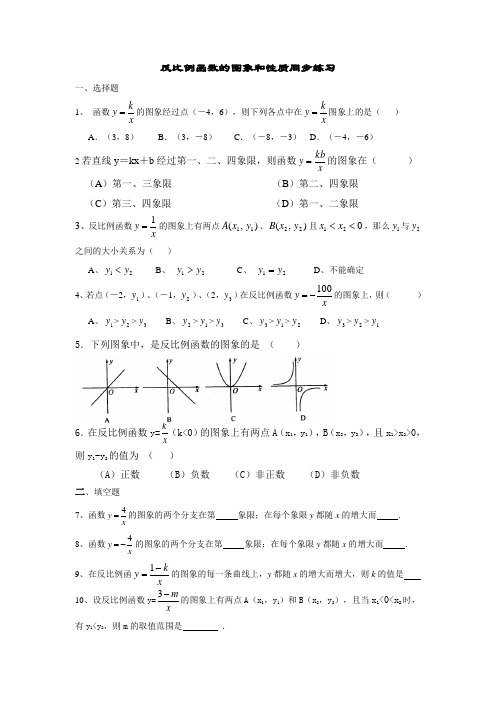 反比例函数的图象和性质周步练习
一、选择题
1、 函数 y=k/x 的图象经过点(-4,6),则下列各点中在 y=k/x 图象上的是( )
A.(3,8) B.(3,-8) C.(-8,-3) D.(-4,-6)
2若直线 y=kx+b 经过第一、二、四象限,则函数 y=kb/x 的图象在( )
(A)第一、三象限 (B)第二、四象限
(C)第三、四象限 (D)第一、二象限
3、反比例函数 y=1/x 的图象上有两点 A(x₁,y₁)、B(x₂,y₂) 且 x₁<x₂<0,那么 y₁ 与 y₂
之间的大小关系为( )
A、y₁<y₂ B、 y₁>y₂ C、 y₁=y₂ D、不能确定
4、若点(-2,y₁)、(-1,y₂)、(2,y₃)在反比例函数 y=-100/x 的图象上,则( )
A、 y₁>y₂>y₃ B、y₂>y₁>y₃ C、y₃>y₁>y₂ D、y₃>y₂>y₁
5.下列图象中,是反比例函数的图象的是 ( )
y y y y
x x x x
A B C D
6.在反比例函数 y=k/x(k<0)的图象上有两点 A(x₁,y₁),B(x₂,y₂),且 x₁>x₂>0,
则 y₁-y₂的值为 ( )
(A)正数 (B)负数 (C)非正数 (D)非负数
二、填空题
7、函数 y=4/x 的图象的两个分支在第____象限;在每个象限 y 都随 x 的增大而____.
8、函数 y=-4/x 的图象的两个分支在第____象限;在每个象限 y 都随 x 的增大而____.
9、在反比例函 y=(1-k)/x 的图象的每一条曲线上,y 都随 x 的增大而增大,则 k 的值是____
10、设反比例函数 y=(3-m)/x 的图象上有两点 A(x₁,y₁)和 B(x₂,y₂),且当 x₁<0<x₂时,
有 y₁<y₂,则 m 的取值范围是____.